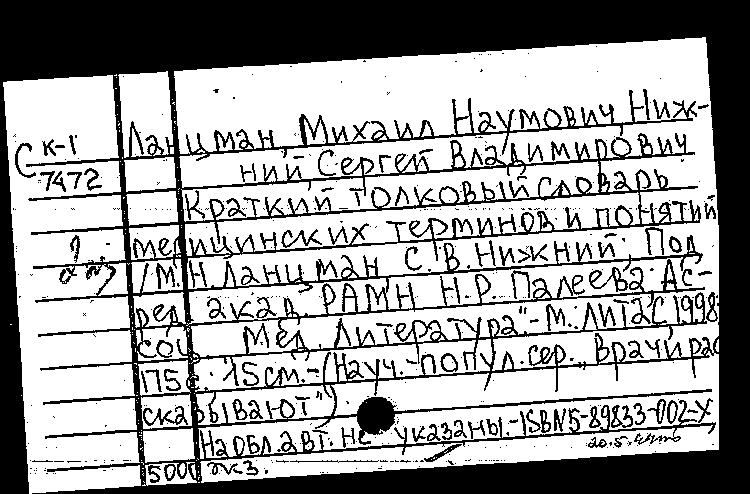 Ланцман, Михаил Наумович, Ниж-
С к-1
7472
ний, Сергей Владимирович
Краткий толковый словарь
медицинских терминов и понятий
/М.Н. Ланцман, С.В. Нижний; Под
ред. акад. РАМН Н.Р. Палеева; Ас-
соц. "Мед. Литература".-М.: ЛИТАС, 1998.
175 с.; 15 см.-(Науч.-попул. сер. "Врачи рас
сказывают")
На обл. авт. не указаны.-ISBN 5-89833-002-X,
5000 экз.